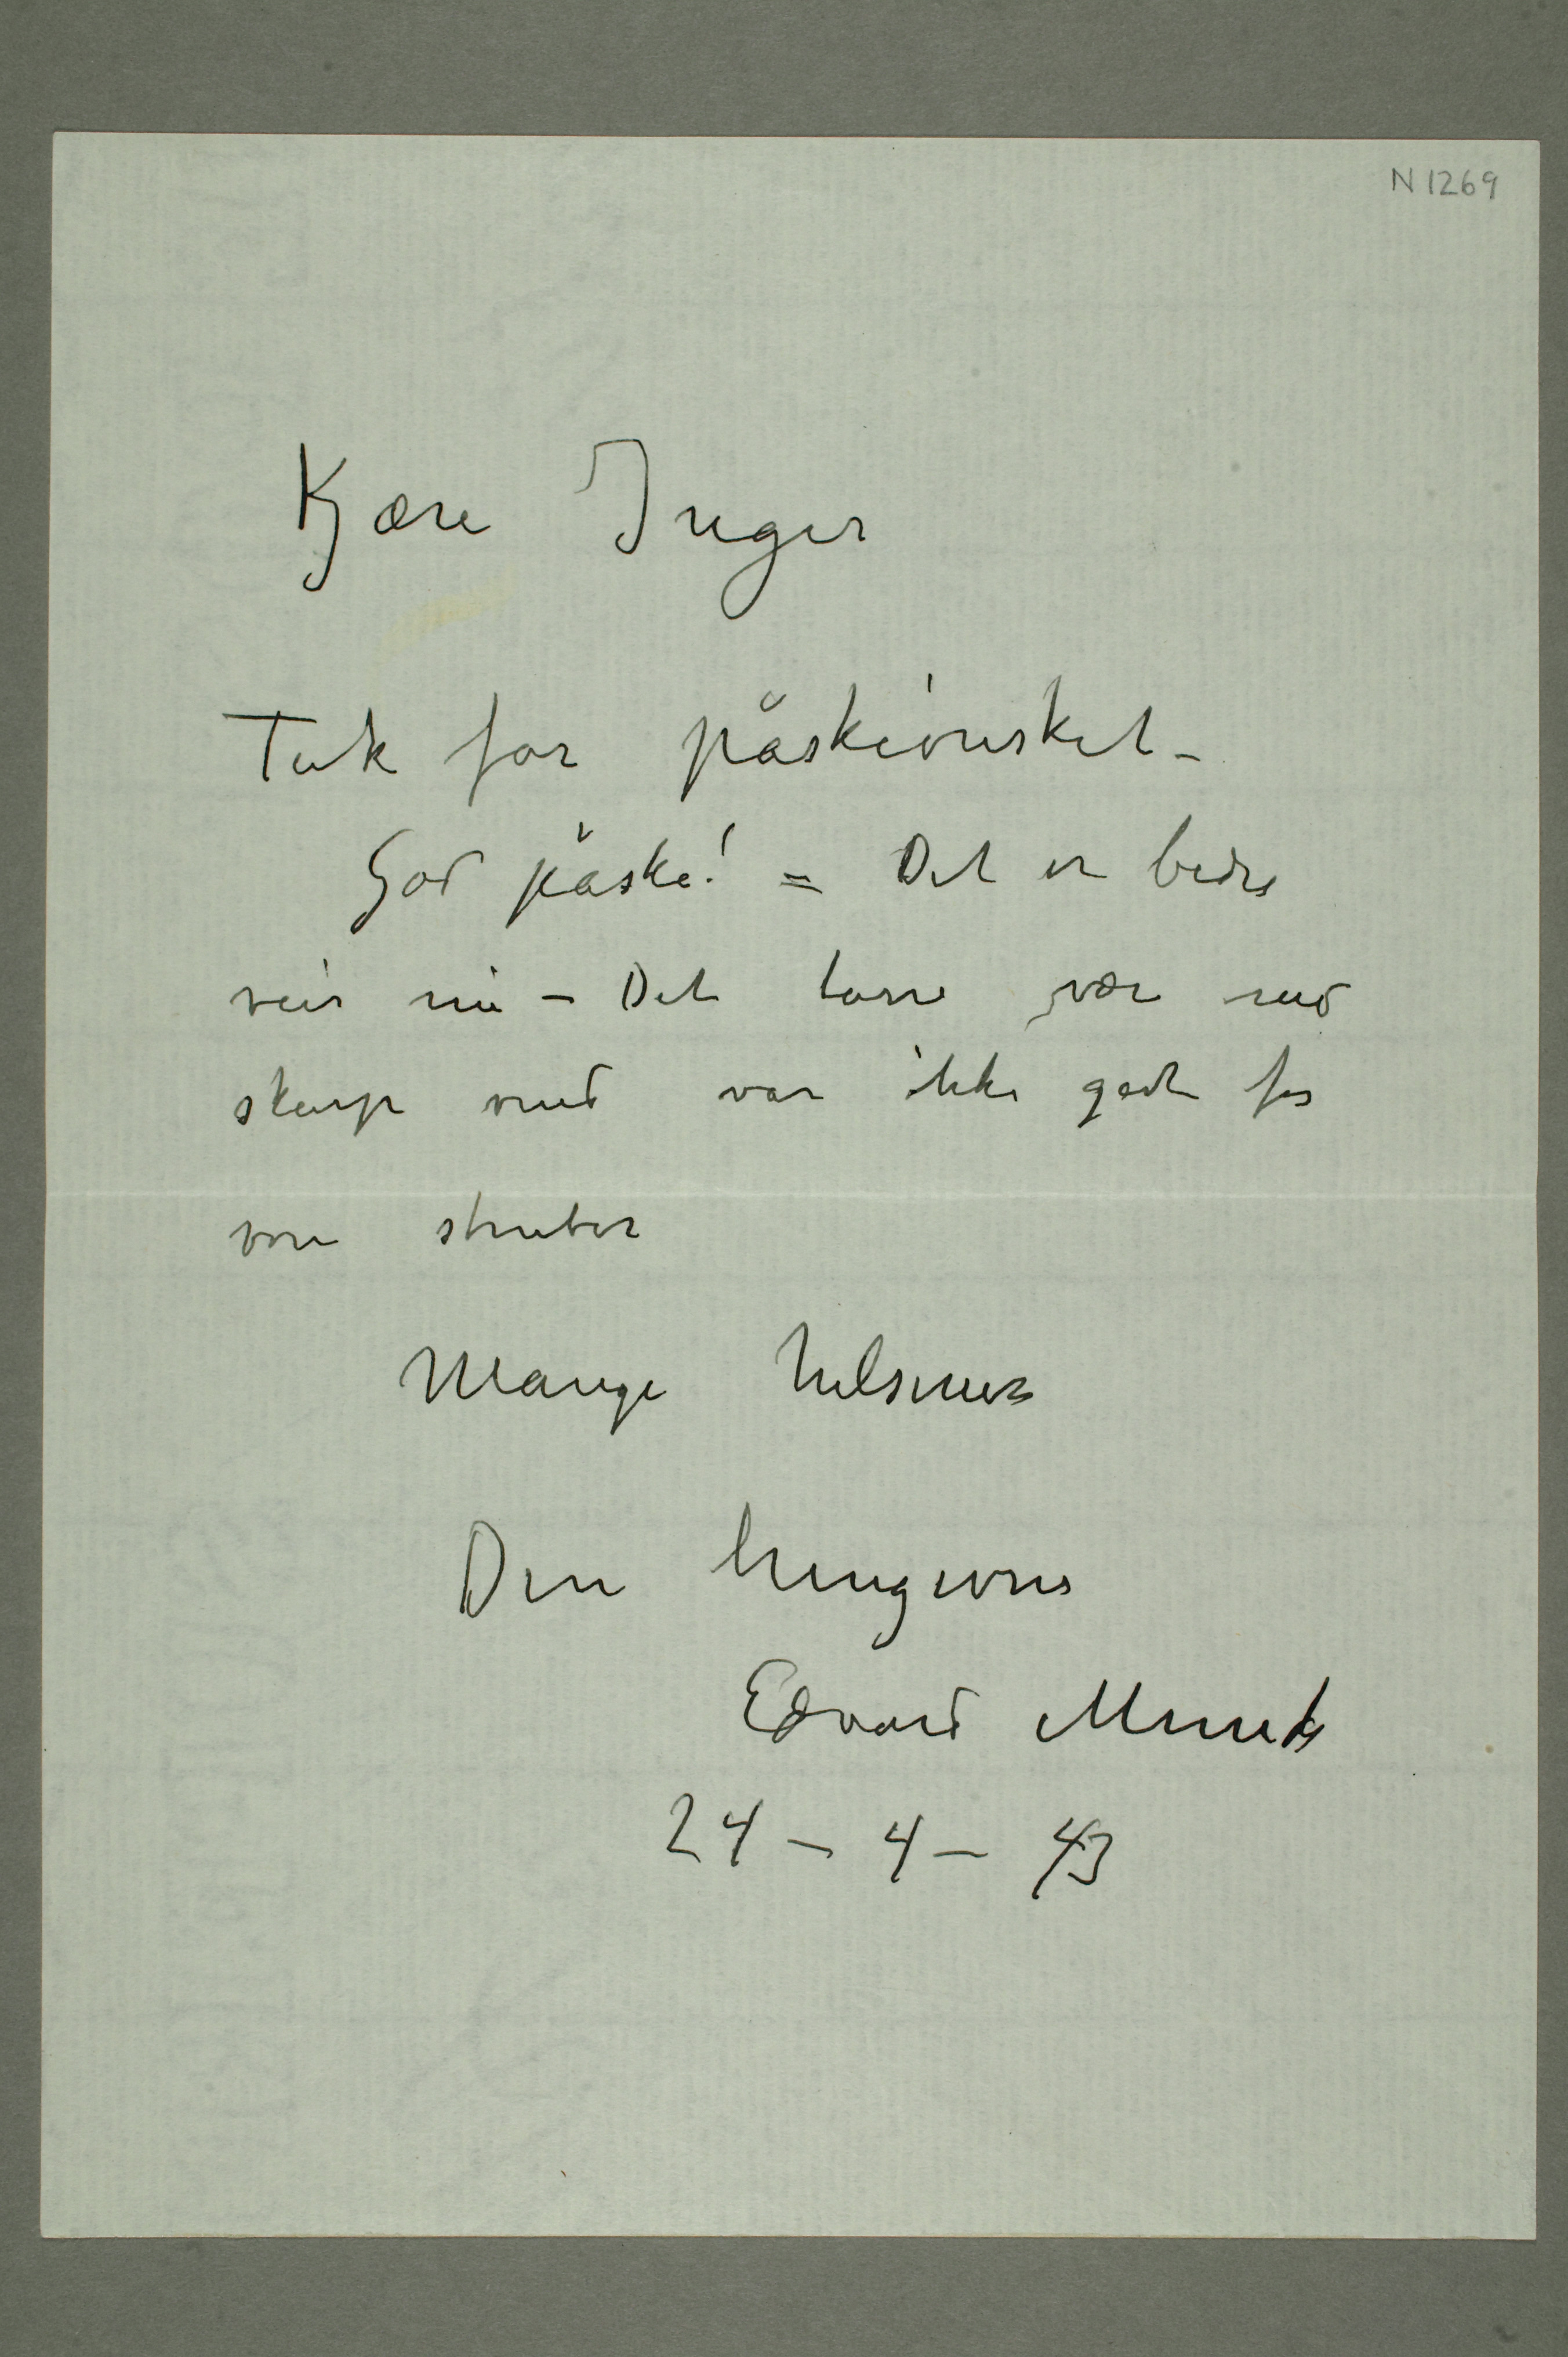 N 1269
Kjære Inger
Tak for påskeønsket –
God påske! = Det er bedre
veir nu – Det tørre veir med
skarp vind var ikke godt for
vore struber
Mange hilsener
Din hengivne
Edvard Munch
24 – 4 – 43